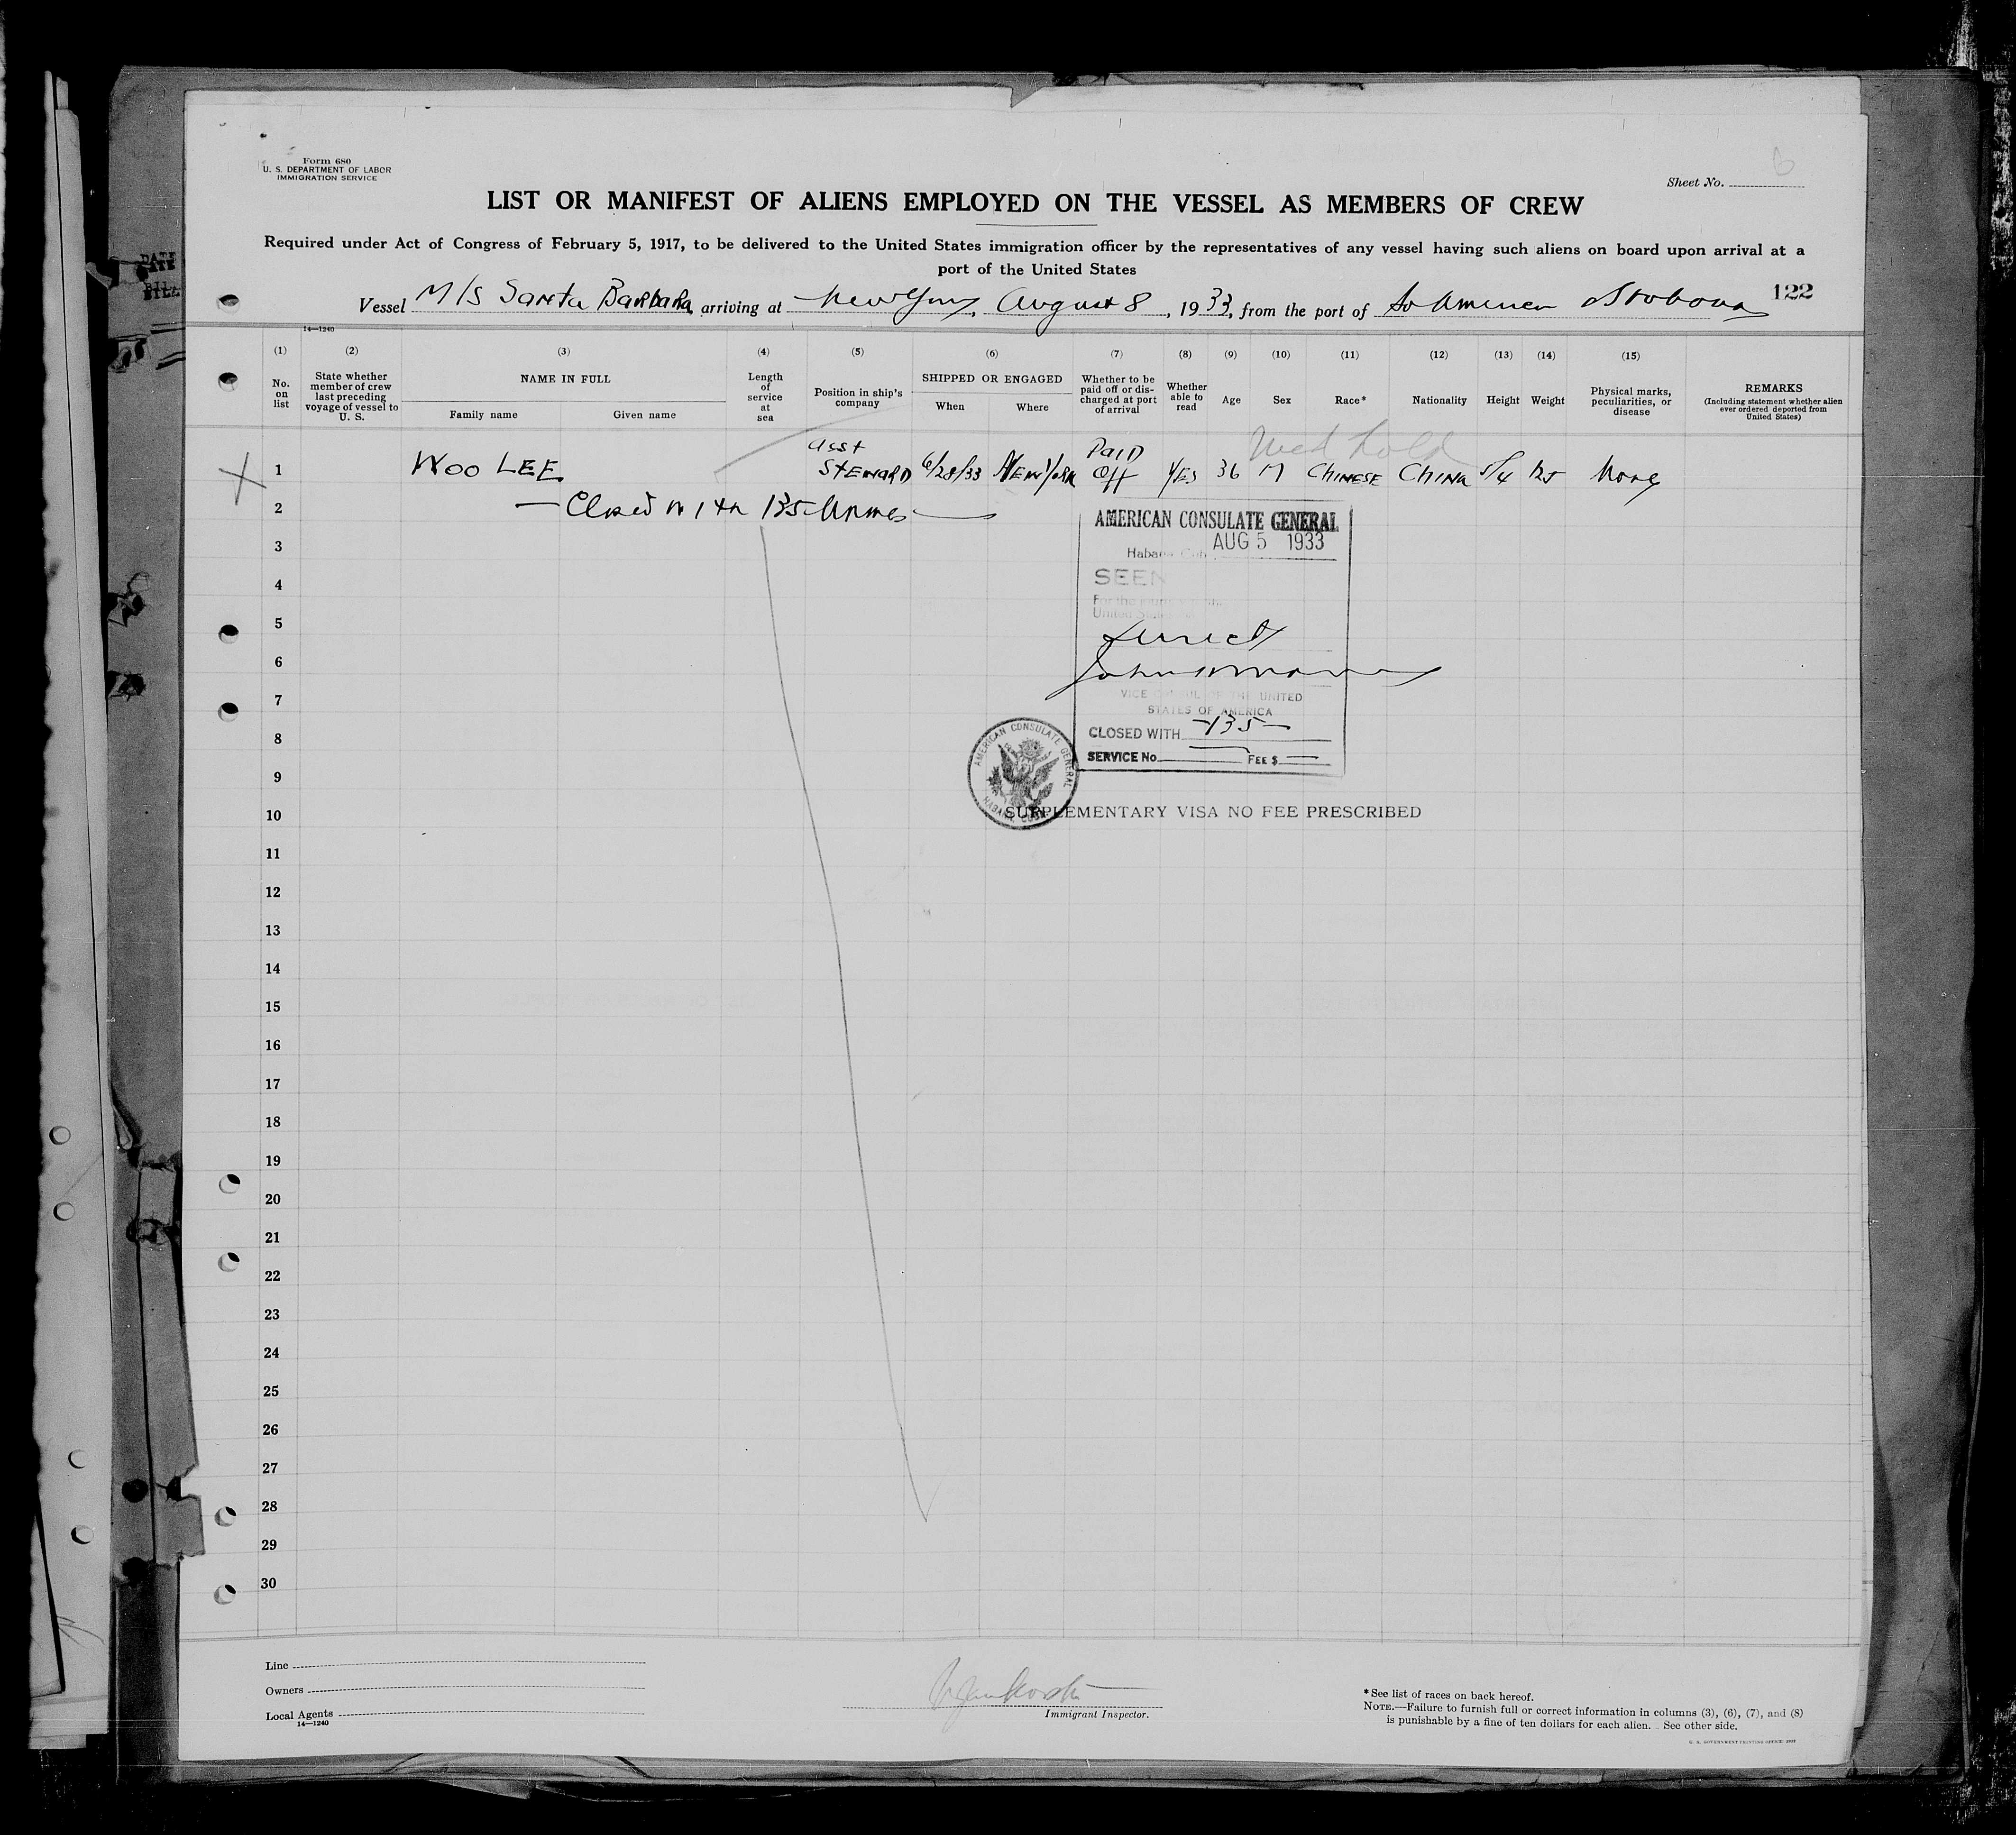 Form 680
U. S. DEPARTMENT OF LABOR
IMMIGRATION SERVICE
Sheet No.
LIST OR MANIFEST OF ALIENS EMPLOYED ON THE VESSEL AS MEMBERS OF CREW
Required under Act of Congress of February 5, 1917, to be delivered to the United States immigration officer by the representatives of any vessel having such aliens on board upon arrival at a
port of the United States
Vessel M/S Santa Barbara, arriving at New York, August 8, 1933, from the port of So America 122
14—1240
(1) (2) (3) (4) (5) (6) (7) (8) (9) (10) (11) (12) (13) (14) (15)
No. on list
State whether member of crew last preceding voyage of vessel to U. S.
NAME IN FULL
Family name Given name
Length of service at sea
Position in ship's company
SHIPPED OR ENGAGED
When Where
Whether to be paid off or discharged at port of arrival
Whether able to read
Age Sex Race* Nationality Height Weight
Physical marks, peculiarities, or disease
REMARKS
(Including statement whether alien ever ordered deported from United States)
Med hold
1 WOO LEE Asst STEWARD 6/28/33 NEW YORK PAID Off YES 36 M CHINESE CHINA 5/4 125 None
2 — Closed with 135 names —
3
4
5
6
7
8
9
10
11
12
13
14
15
16
17
18
19
20
21
22
23
24
25
26
27
28
29
30
AMERICAN CONSULATE GENERAL
AUG 5 1933
Habana
SEEN
For the
United
VICE CONSUL OF THE UNITED
STATES OF AMERICA
CLOSED WITH —135—
SERVICE No. FEE $
AMERICAN CONSULATE GENERAL
HABANA, CUBA
SUPPLEMENTARY VISA NO FEE PRESCRIBED
Line
Owners
Local Agents
14—1240
Immigrant Inspector.
*See list of races on back hereof.
NOTE.—Failure to furnish full or correct information in columns (3), (6), (7), and (8)
is punishable by a fine of ten dollars for each alien. See other side.
U. S. GOVERNMENT PRINTING OFFICE